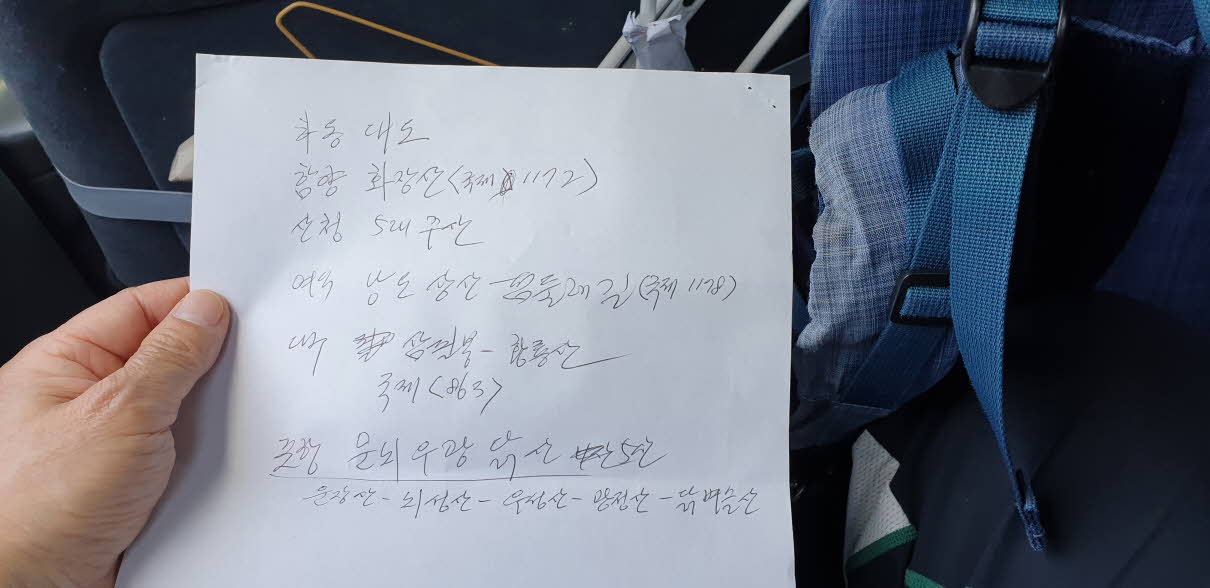 하동 대도
함양 화장산(국제 1172)
산청 5대 주산
여수 낭도 상산 둘레길(국제 1178)
대구 삼필봉 - 황룡산
국제 (863)
포항 문뇌우광닭산 5산
운장산 - 뇌성산 - 우정산 - 광정산 - 닭벼슬산